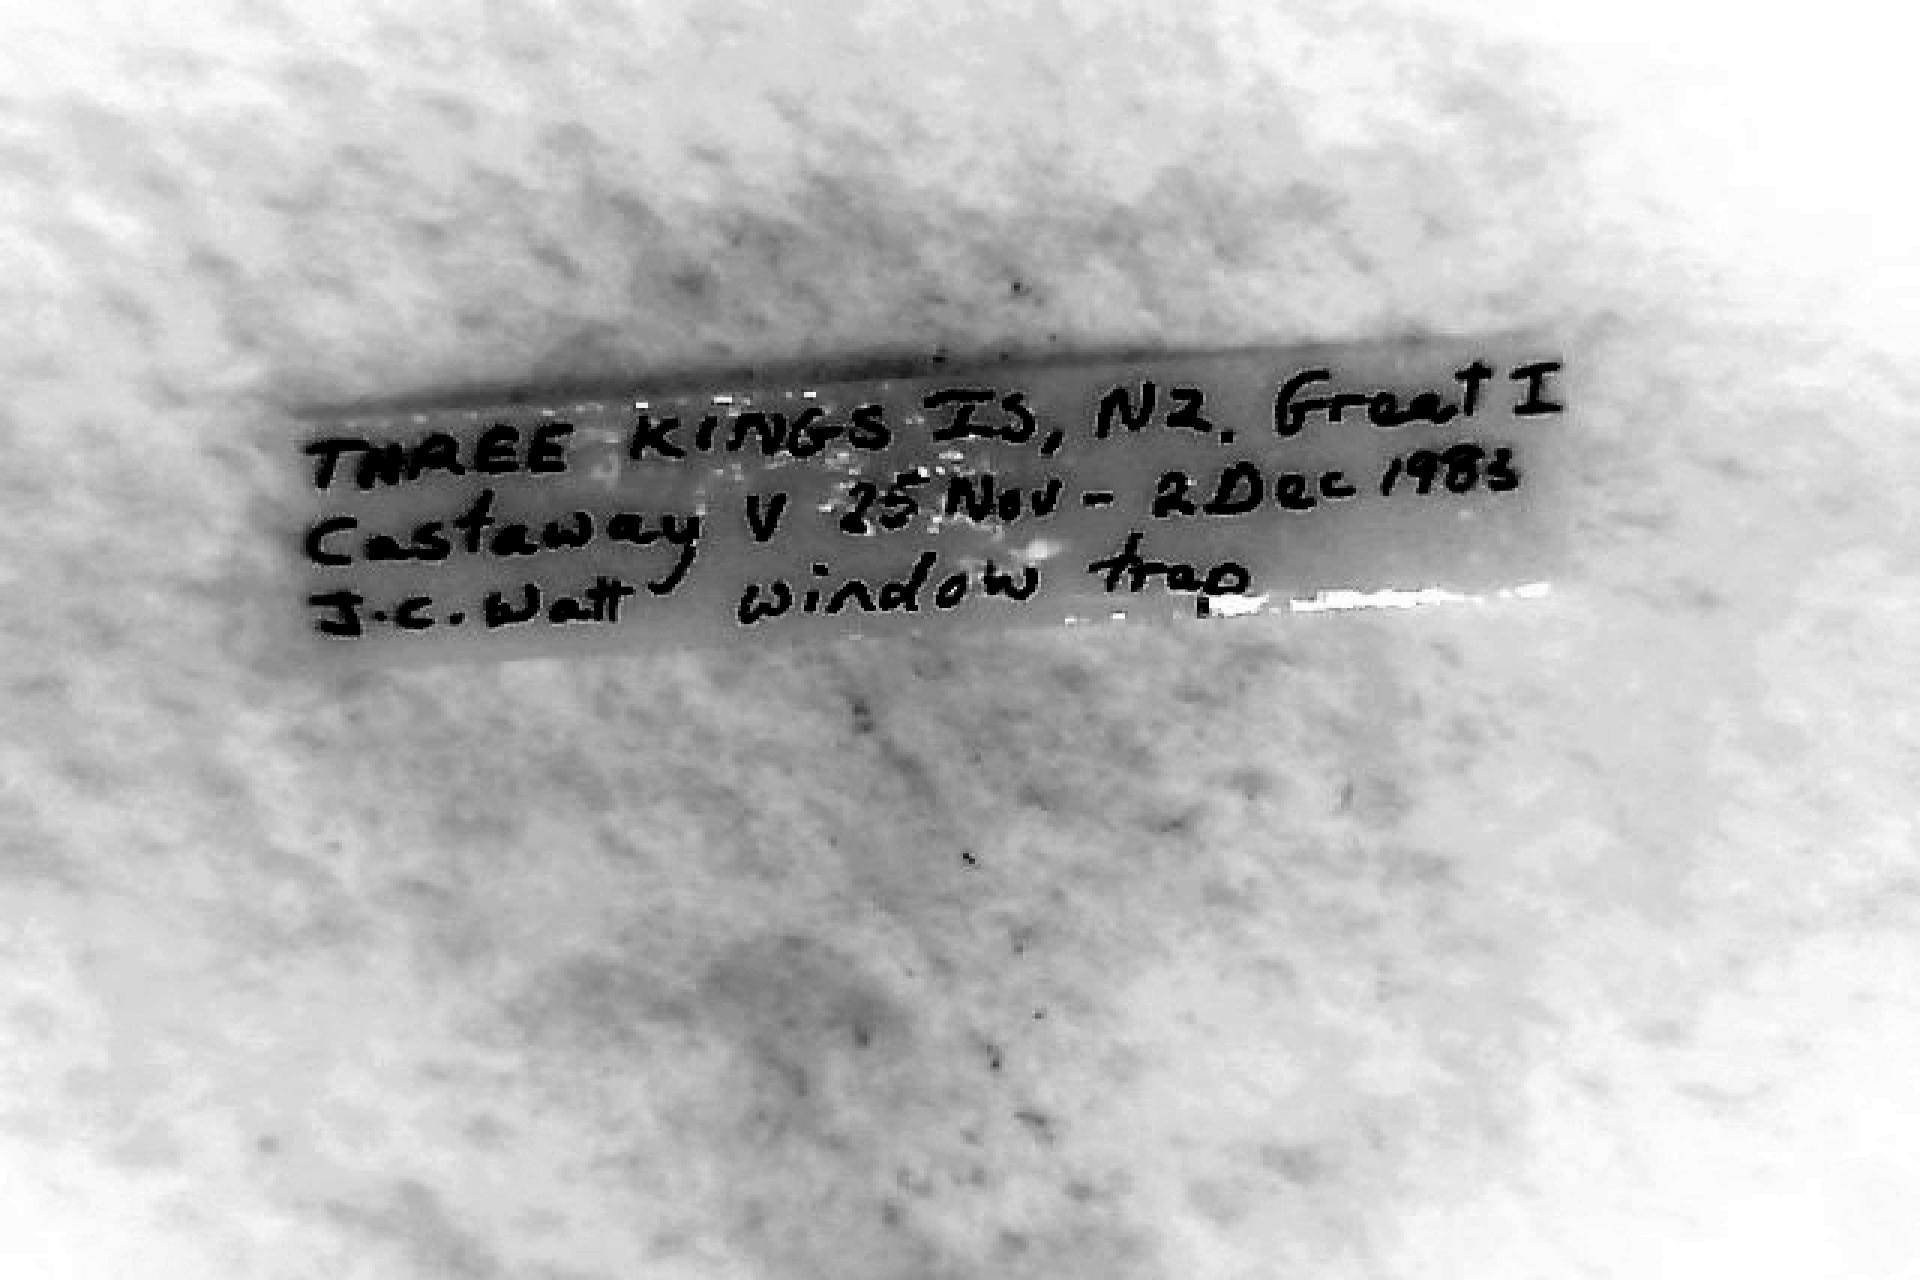 THREE KINGS IS, NZ. Great I
Castaway V 25 Nov - 2 Dec 1983
J.C. Watt window trap